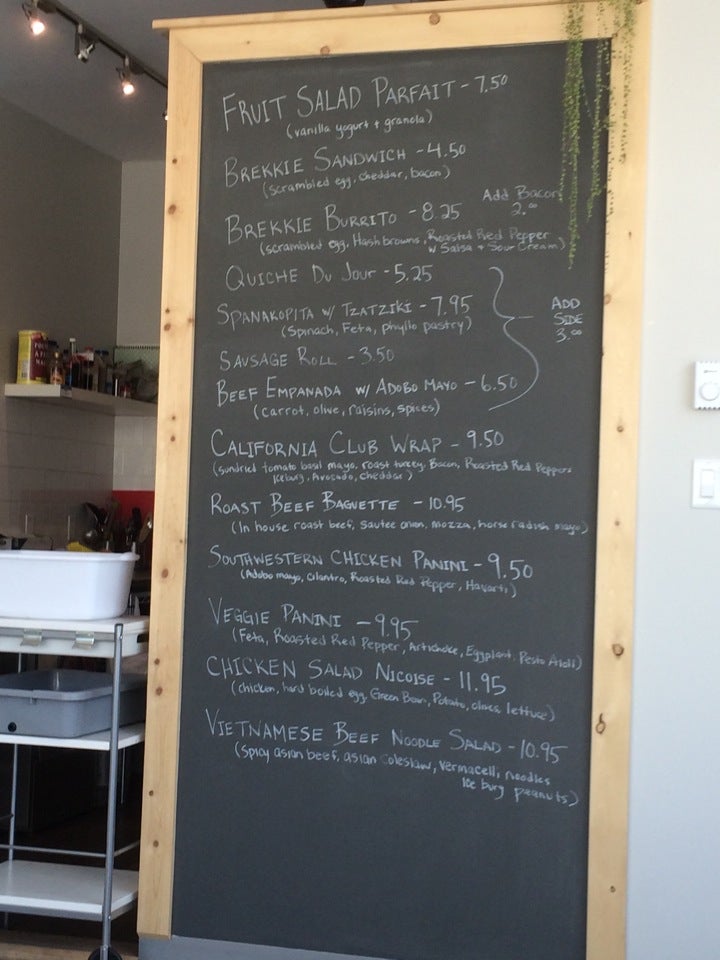 FRUIT SALAD PARFAIT - 7.50
(vanilla yogurt + granola)
BREKKIE SANDWICH - 4.50
(scrambled egg, cheddar, bacon)
Add Bacon
2.00
BREKKIE BURRITO - 8.25
(scrambled egg, Hashbrowns, Roasted Red Pepper
w Salsa + Sour Cream)
QUICHE DU JOUR - 5.25
SPANAKOPITA W/ TZATZIKI - 7.95
(Spinach, Feta, phyllo pastry)
ADD
SIDE
3.00
SAUSAGE ROLL - 3.50
BEEF EMPANADA W/ ADOBO MAYO - 6.50
(carrot, olive, raisins, spices)
CALIFORNIA CLUB WRAP - 9.50
(sundried tomato basil mayo, roast turkey, Bacon, Roasted Red Peppers
Iceburg, Avocado, cheddar)
ROAST BEEF BAGUETTE - 10.95
(In house roast beef, sautee onion, mozza, horse radish mayo)
SOUTHWESTERN CHICKEN PANINI - 9.50
(Adobo mayo, cilantro, Roasted Red Pepper, Havarti)
VEGGIE PANINI - 9.95
(Feta, Roasted Red Pepper, Artichoke, Eggplant, Pesto Aioli)
CHICKEN SALAD NICOISE - 11.95
(chicken, hard boiled egg, Green Bean, Potato, olives lettuce)
VIETNAMESE BEEF NOODLE SALAD - 10.95
(Spicy asian beef, asian coleslaw, vermacelli, noodles
Ice burg peanuts)